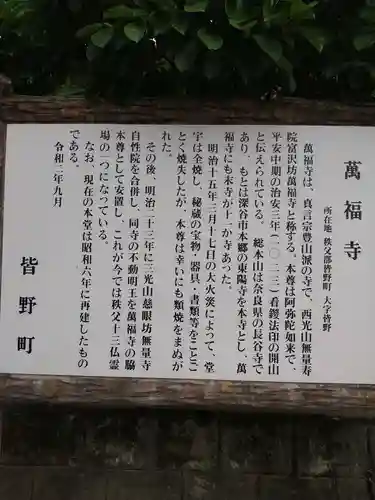 萬福寺
所在地 秩父郡皆野町 大字皆野
萬福寺は、真言宗豊山派の寺で、西光山無量寿
院富沢坊萬福寺と称する。本尊は阿弥陀如来で、
平安中期の治安三年（一〇二三）看鑁法印の開山
と伝えられている。総本山は奈良県の長谷寺で
あり、もとは深谷市本郷の東陽寺を本寺とし、萬
福寺にも末寺が十一か寺あった。
明治十五年三月十七日の大火災によって、堂
宇は全焼し、秘蔵の宝物・器具・書類等をことご
とく焼失したが、本尊は幸いにも類焼をまぬが
れた。
その後、明治二十三年に三光山慈眼坊無量寺
自性院を合併し、同寺の不動明王を萬福寺の脇
本尊として安置し、これが今では秩父十三仏霊
場の一つになっている。
なお、現在の本堂は昭和六年に再建したもの
である。
令和二年九月
皆野町